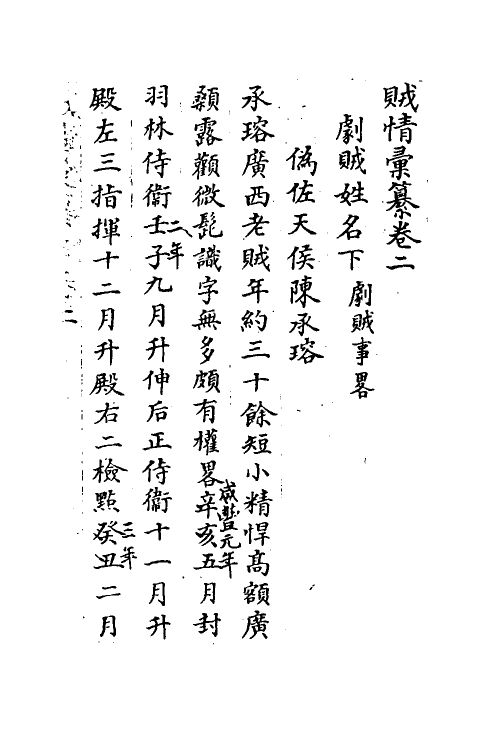 賊情彙纂卷二
劇賊姓名下 劇賊事畧
偽佐天侯陳承瑢
承瑢廣西老賊年約三十餘短小精悍高額廣
顙露顴微髭識字無多頗有權畧辛亥咸豐元年五月封
羽林侍衞壬子二年九月升伸后正侍衞十一月升
殿左三指揮十二月升殿右二檢點癸丑三年二月